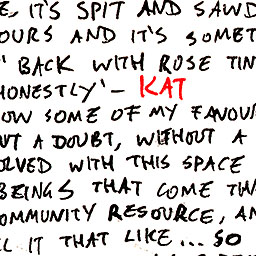 E, IT'S SPIT AND SAWD
OURS AND IT'S SOMET
' BACK WITH ROSE TIN
HONESTLY' – KAT
OW SOME OF MY FAVOU
UT A DOUBT, WITHOUT A
OLVED WITH THIS SPACE
BEINGS THAT COME TH
OMMUNITY RESOURCE, AN
L IT THAT LIKE ... SO